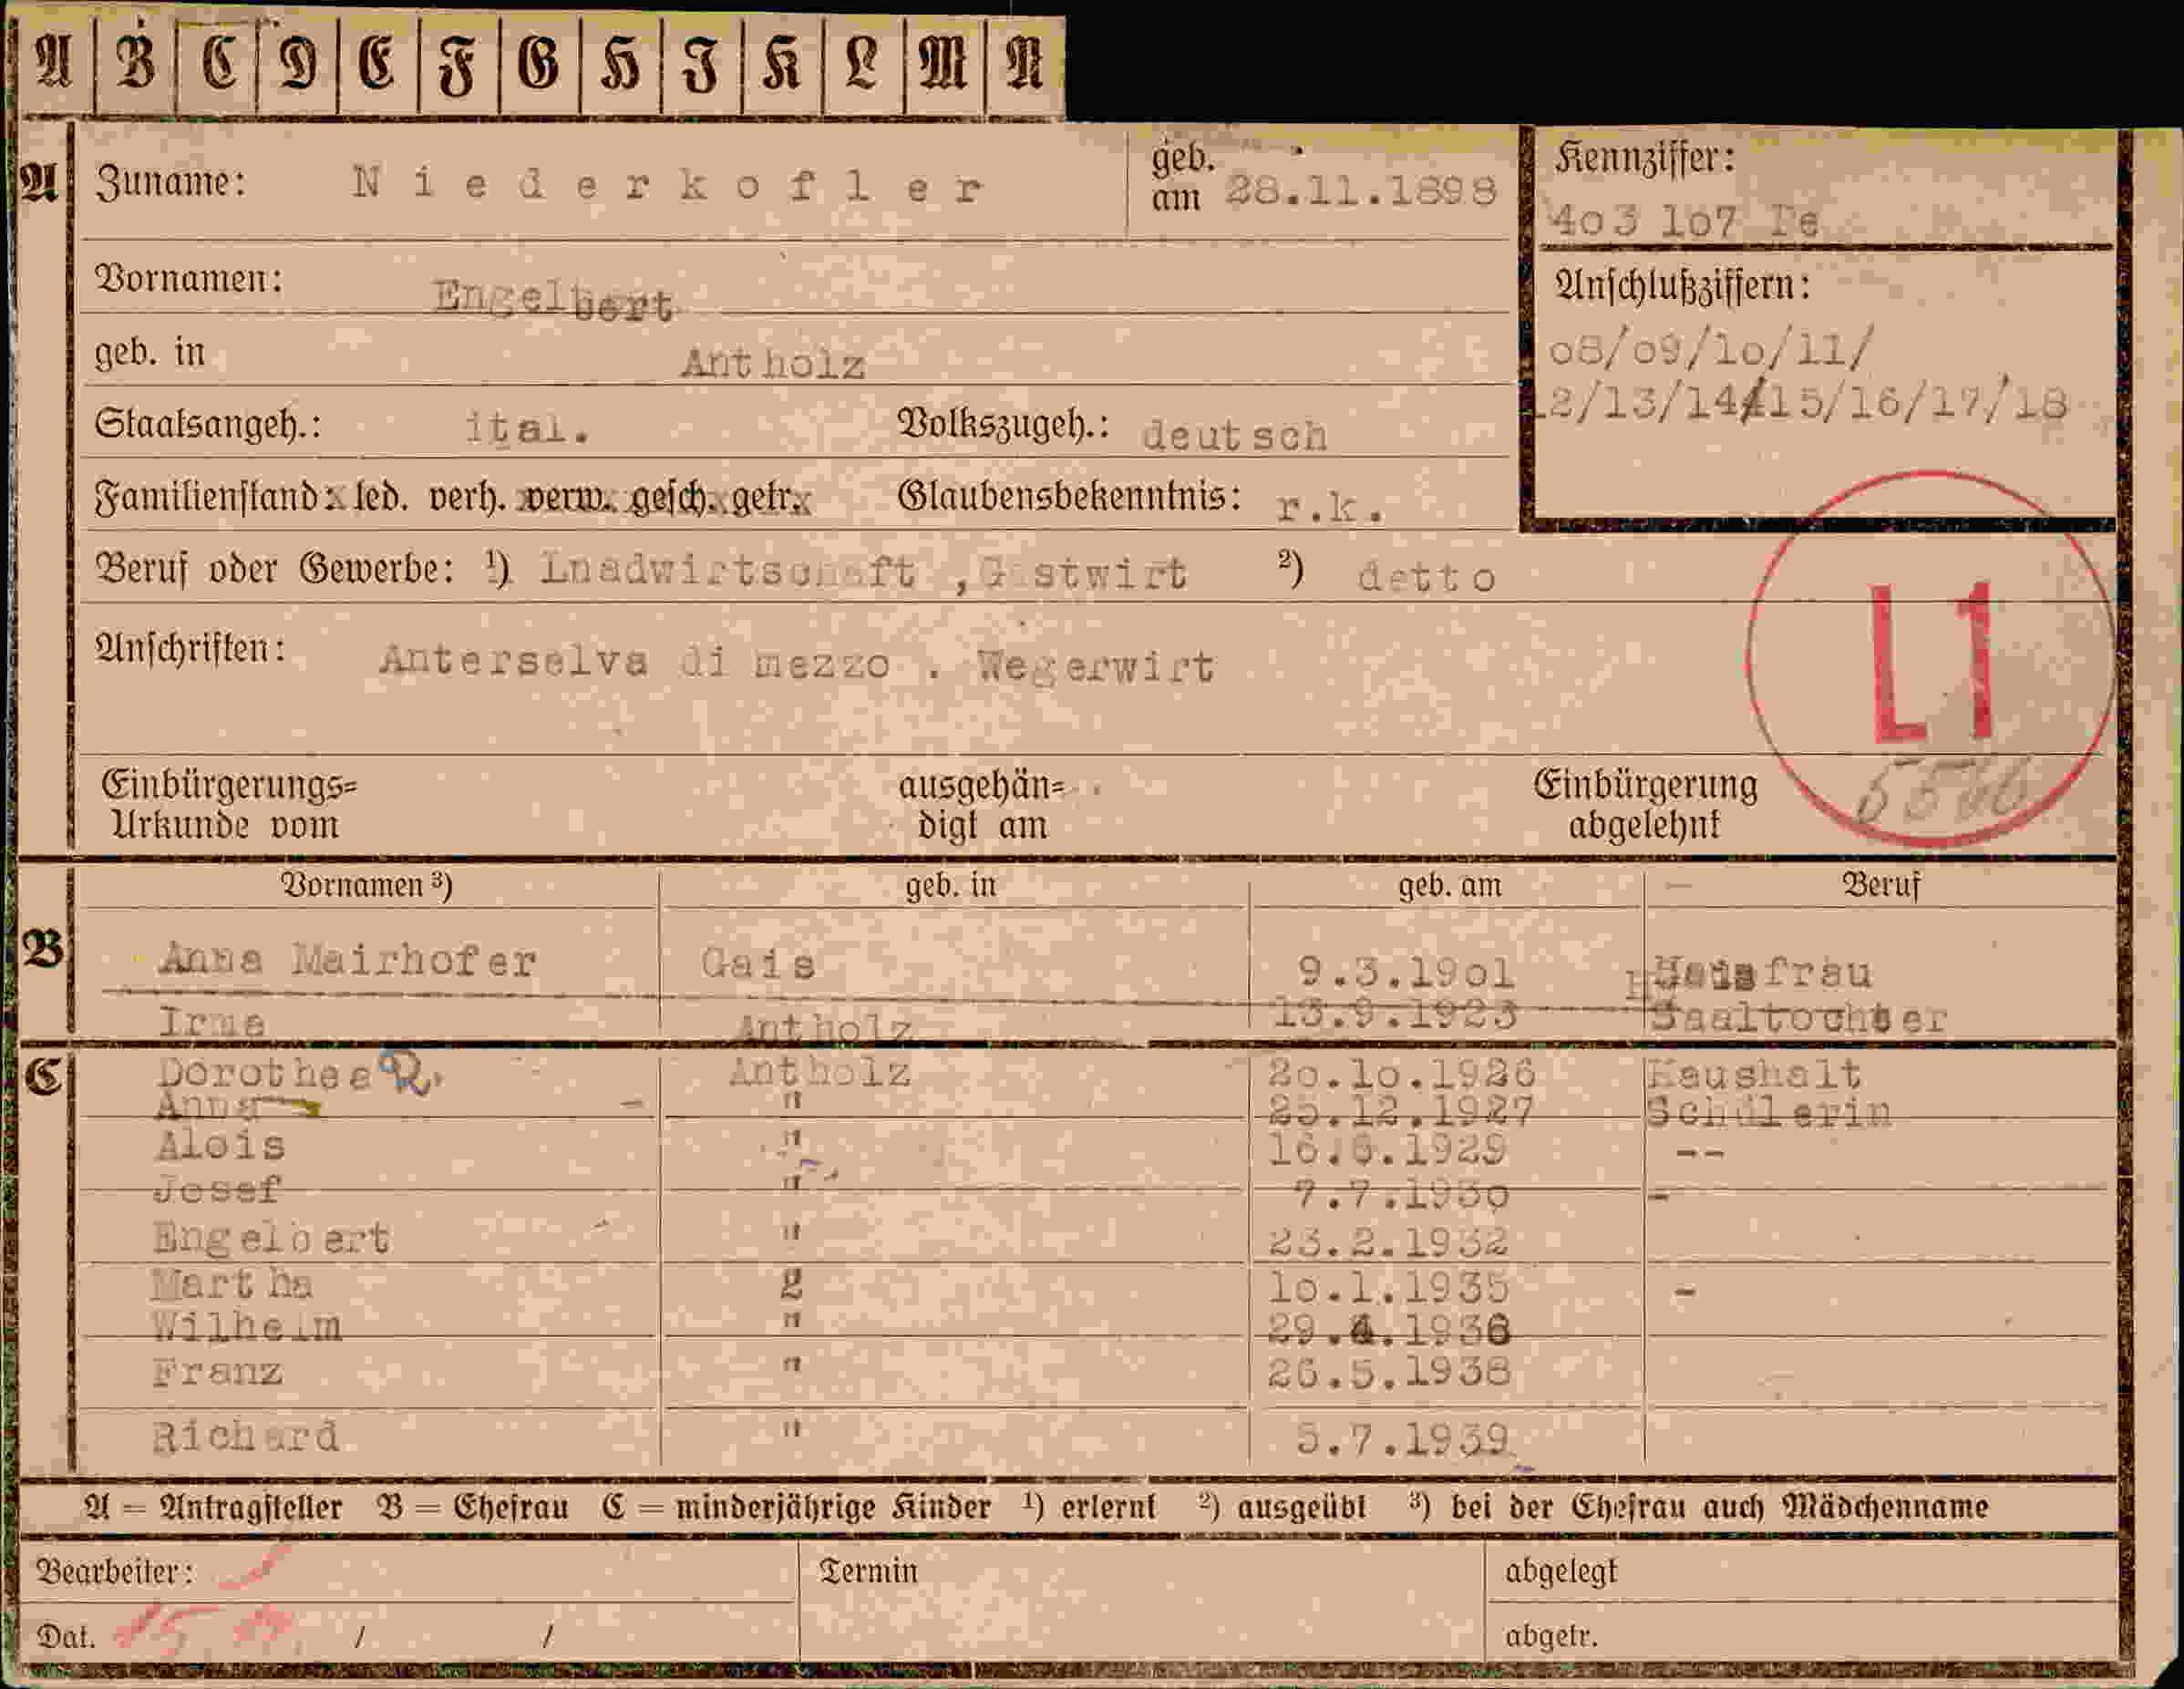 A B C D E F G H I K L M N
A Zuname: Niederkofler geb. am 28.11.1898
Kennziffer:
403 107 Pe
Vornamen: Engelbert
Anschlußziffern:
08/09/10/11/
12/13/14/15/16/17/18
geb. in Antholz
Staatsangeh.: ital. Volkszugeh.: deutsch
Familienstand: led. verh. verw. gesch. getr. Glaubensbekenntnis: r.k.
Beruf oder Gewerbe: ¹) Lnadwirtschaft , Gastwirt ²) detto
Anschriften: Anterselva di mezzo . Wegerwirt
L1
Einbürgerungs= Urkunde vom ausgehän= digt am Einbürgerung abgelehnt
Vornamen ³) geb. in geb. am Beruf
B Anna Mairhofer Gais 9.3.1901 Hausfrau
Irma Antholz 13.9.1923 Saaltochter
C Dorothea R. Antholz 20.10.1926 Haushalt
Anna " 25.12.1927 Schülerin
Alois " 16.6.1929 --
Josef " 7.7.1930 -
Engelbert " 23.2.1932
Martha 2 10.1.1935 -
Wilhelm " 29.4.1936
Franz " 26.5.1938
Richard " 5.7.1939
A = Antragsteller B = Ehefrau C = minderjährige Kinder ¹) erlernt ²) ausgeübt ³) bei der Ehefrau auch Mädchenname
Bearbeiter: Termin abgelegt
Dat. 15 / / abgetr.